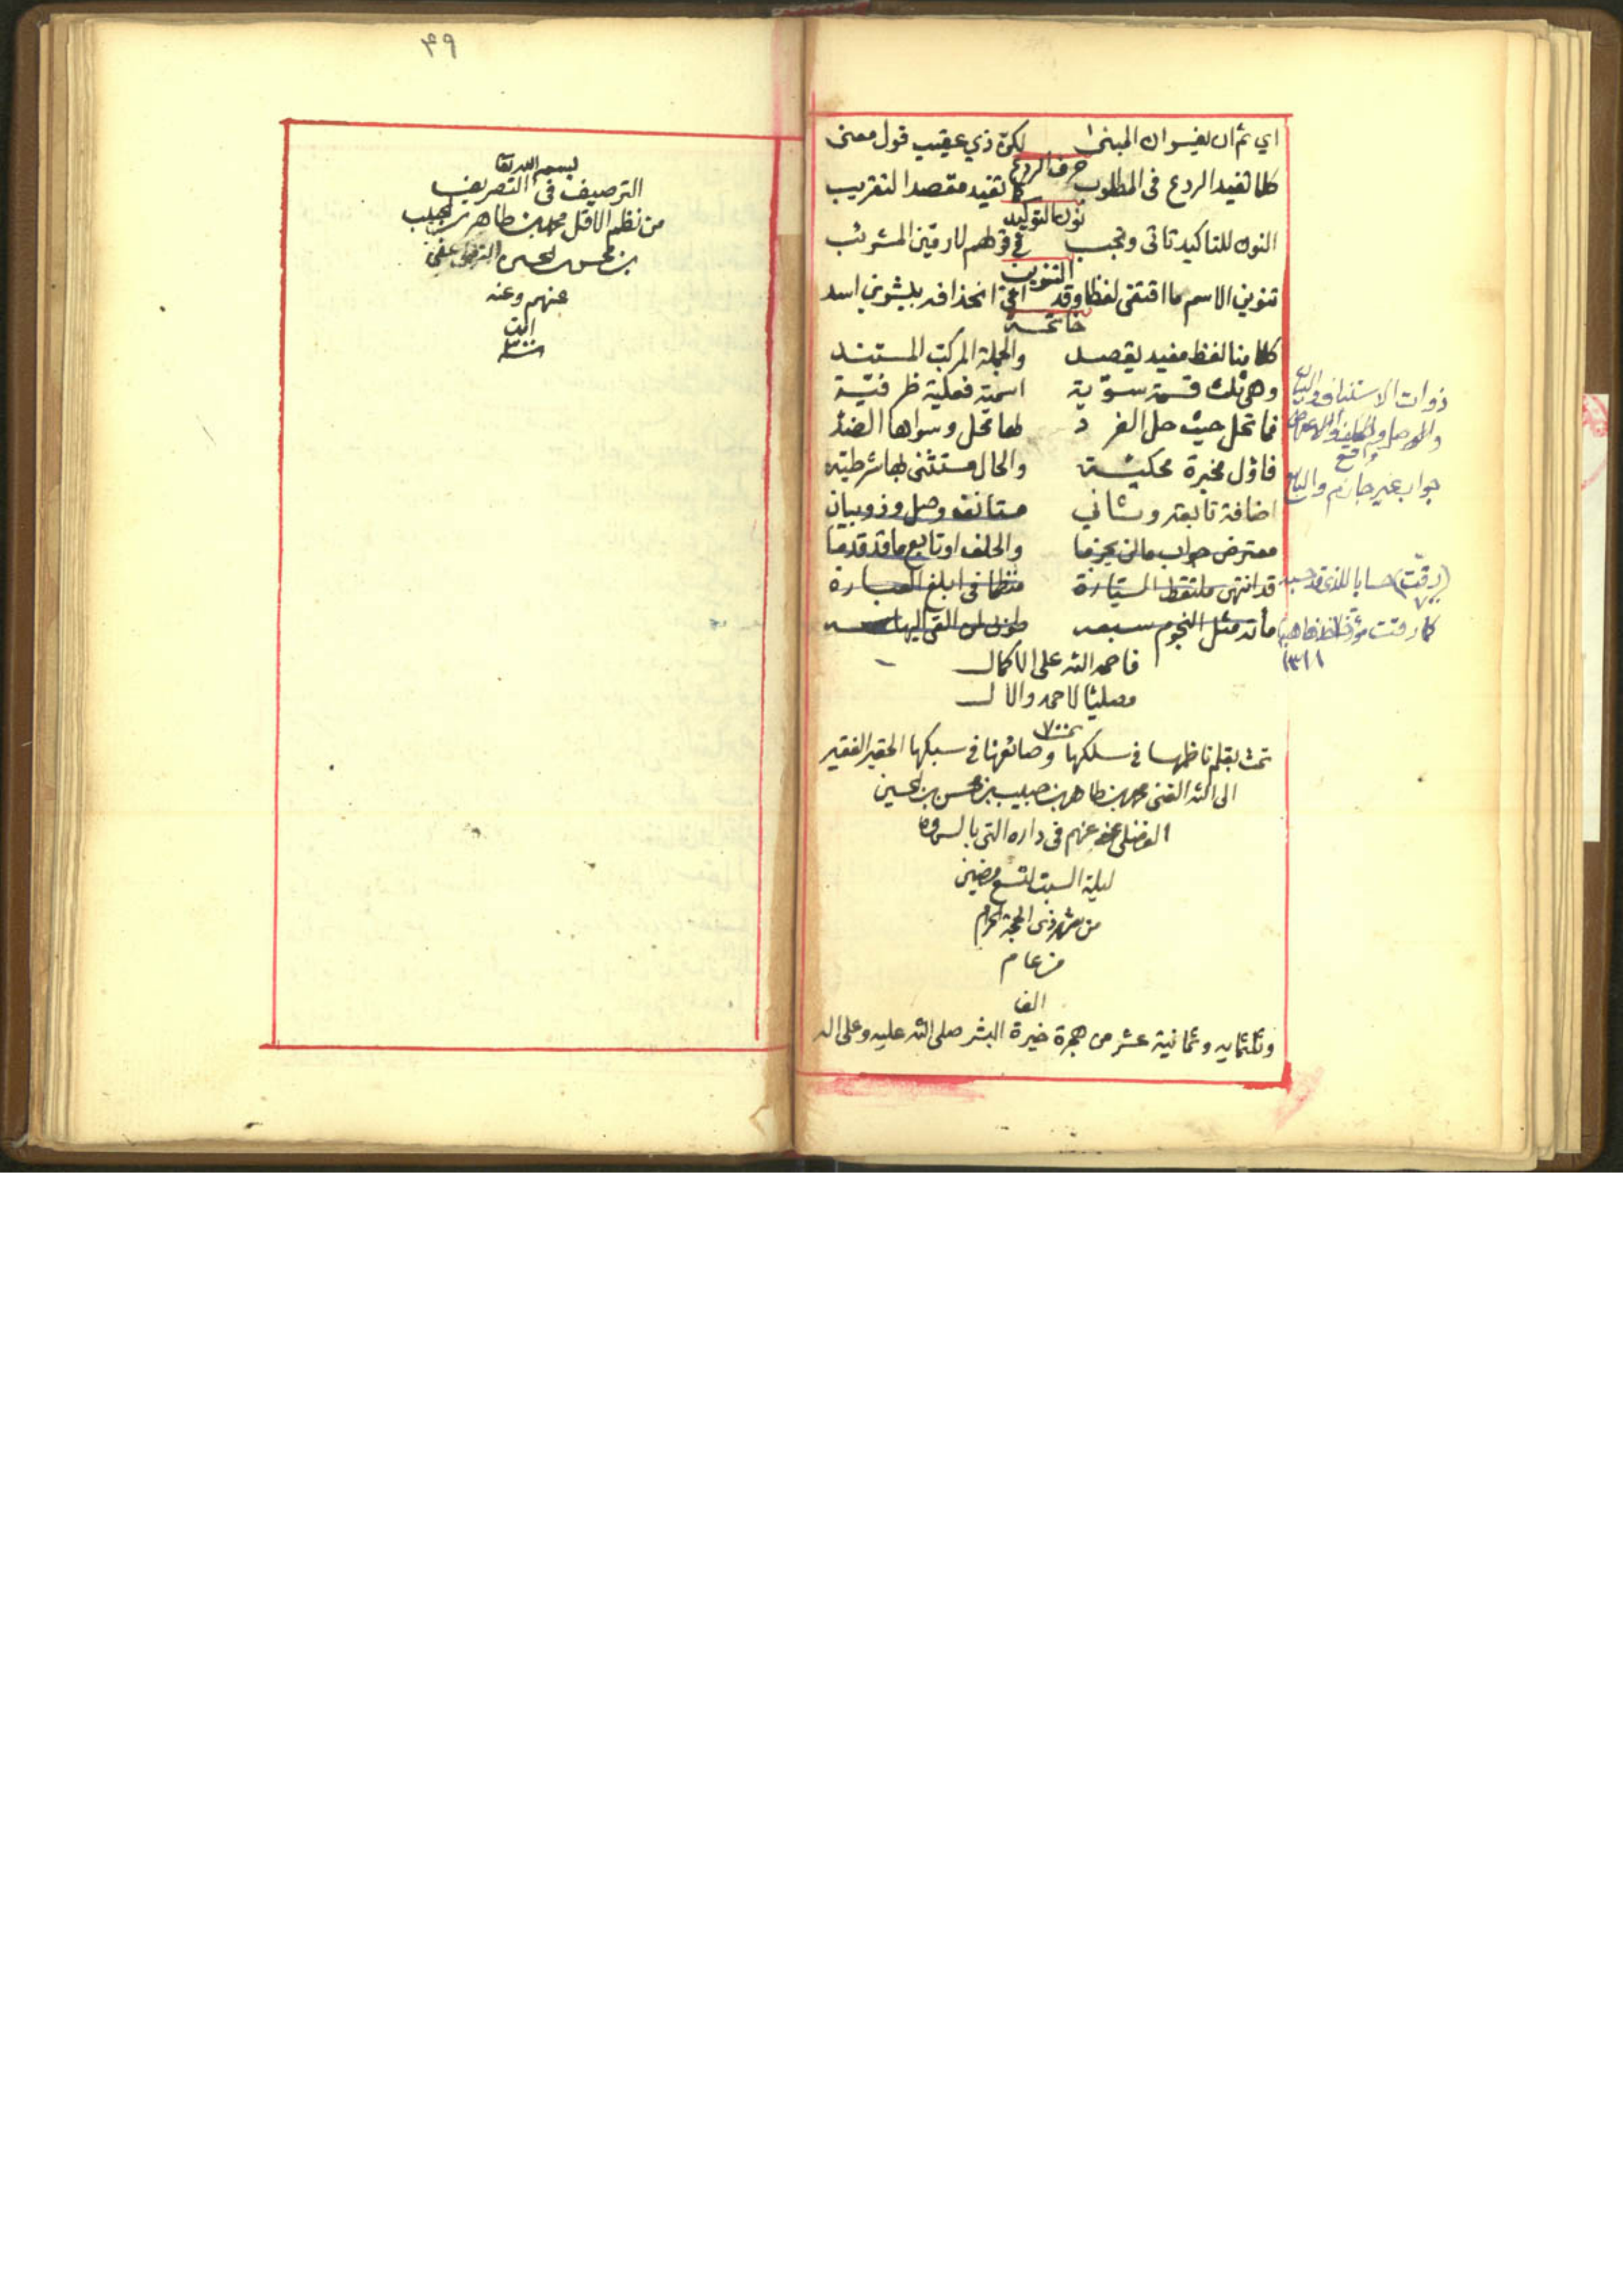 اي ثم ان يفيسوان المبنى لكن ذي عقيب قول معنى
حرف الردع
كلا تفيد الردع في المطلوب كما تفيد مقصد التقريب
نون التوكيد
النون للتاكيد تاتى وتجب في قولهم
التنوين
تنوين الاسم ما اقتفى لفظا وقد
خاتمة
كلامنا لفظ مفيد يقصد والجملة المركب المستند
وهي ثلث قسمة سوية اسمية فعلية ظرفية
فما تحل حيث حل المفرد لها محل وسواها الضد
فاول مخبرة محكية والحال مستثنى بها شرطية
اضافة تابعة وثاني مستانف وصل وذو بيان
معترض جواب مالن يجزما والحلف او تابع ما قد قدما
قد انتهى ملتقط السيارة منظما في ابلغ العبارة
مأته مثل النجوم سبعه طوبى لمن القى اليها
فاحمد الله على الاكمال
مصليا لاحمد والال
تمت ٧٠٠
تمت بقلم ناظمها في سلكها وصائغها في سبكها الحقير الفقير
الى الله الغني محمد بن طاهر بن حبيب بن محسن بن الحسين
الفضلي عفي عنهم في داره التي بالسماوه
ليلة السبت لتسع مضين
من شهر ذي الحجة الحرام
من عام
الف
وثلثمايه وثمانية عشر من هجرة خيرة البشر صلى الله عليه وعلى اله
ذوات الاستئناف والبيان
والوصل والحلف والاعتراض
واقع
جواب غير جازم والتابع
(رقت) حسابا للذي قد حسبه
٧٠٠
كما رقت مؤرخا
١٣١٨
٤٩
بسم الله تعا
الترصيف في التصريف
من نظم الاقل محمد بن طاهر بن الحبيب
بن محسن بن الحسين الفضلي عفي
عنهم وعنه